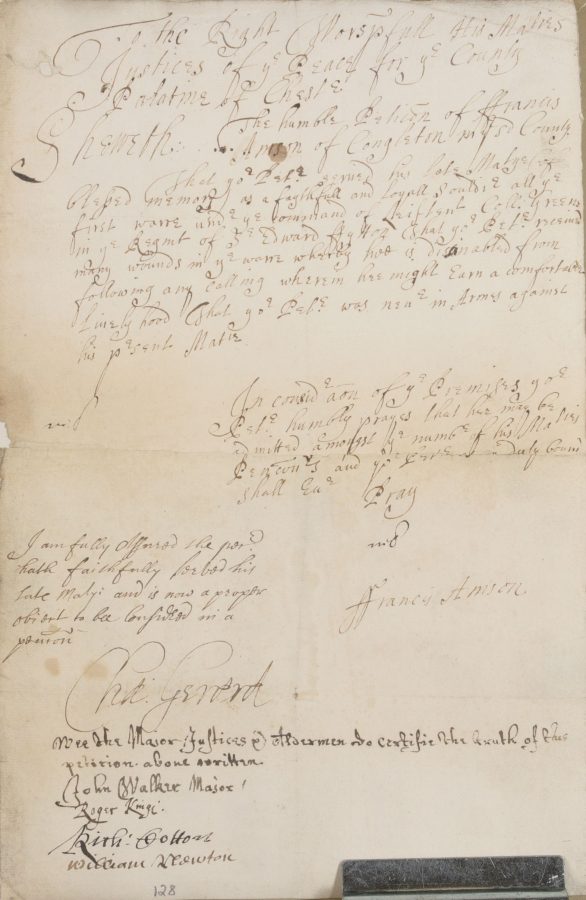 To the Right Worspfull His Maties
Justices of ye Peace for ye County
Palatine of Chester
The humble Peticon of Ffrancis
Sheweth Amson of Congleton County
That yor Petr served his late Matye of
blessed memory as a faythfull and loyall Souldier all ye
first warre undr ye command of Leiftent Coll Greene
in ye Regmt of Sr Edward Fytton That yor Petr received
many wounds in ye warre wherby hee is disinabled from
following any Calling wherein hee might Earn a comfortable
lively hood That yor Petr was nevr in Armes against
his prsent Matie
In considracon of ye Premises yor
Petr humbly prayes that hee may be
admitted amongst ye numbr of his Maties
Pencionrs and yor Petr as in duty bound
shall Evr Pray
I am fully Assured the petr
hath faithfully served his
late Matyi and is now a proper
obiect to bee Considred in a
pencion
Ffrancis Amson
Cha: Gerard
Wee the Maior Justices & Aldermen do certifie the truth of this
peticion above written
John Walker Maior
Roger Kingi
Rich: Cotton
William Newton
128